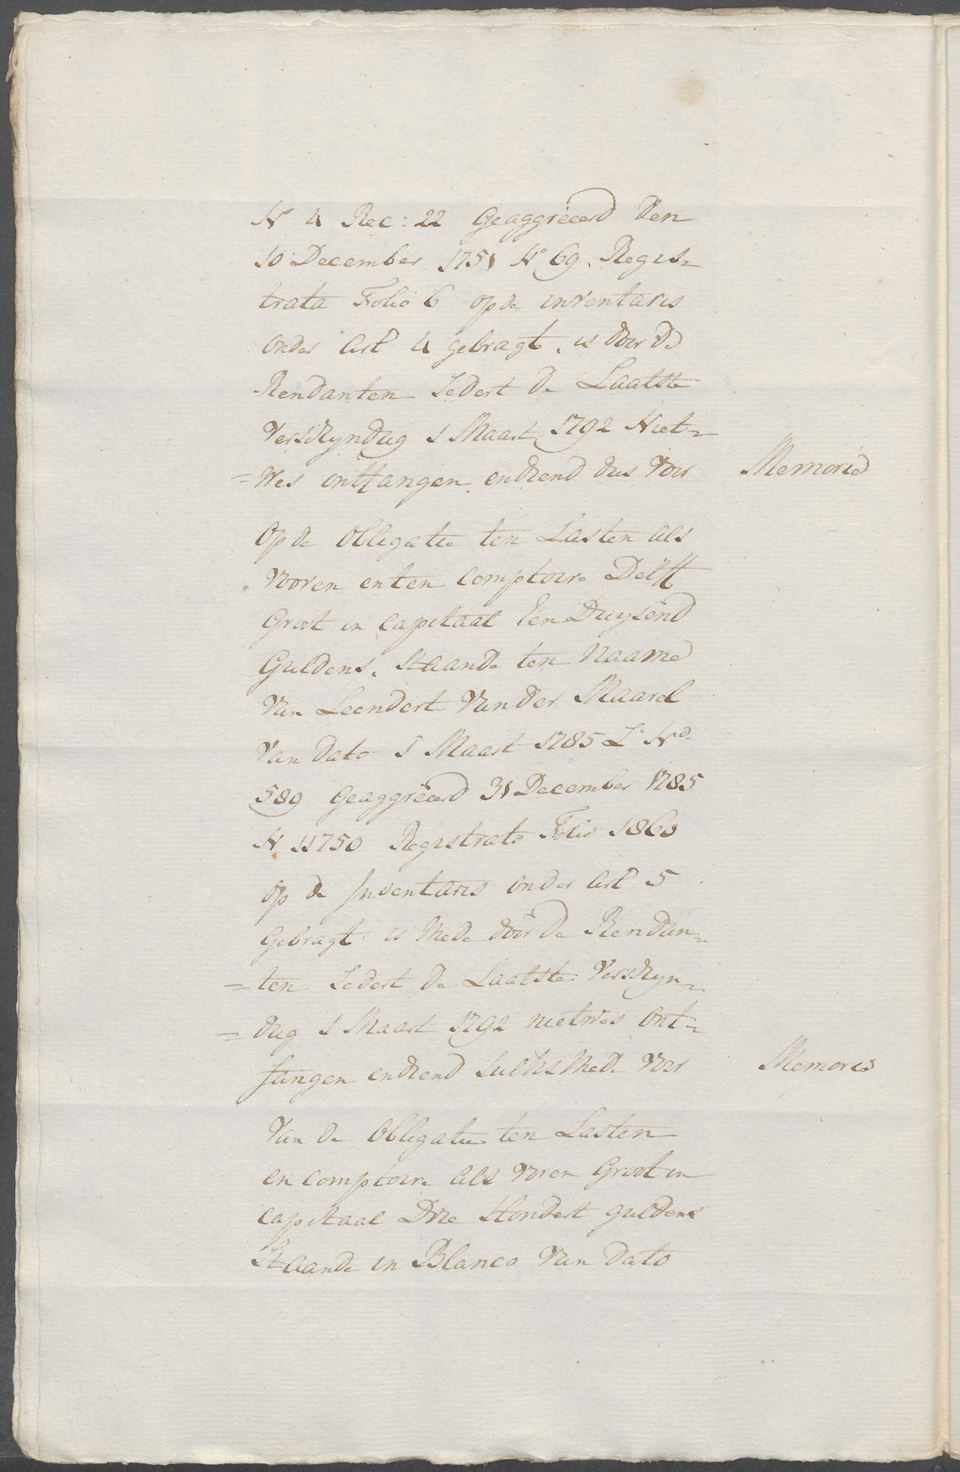 N 4 Rec: 22 Geaggreëerd den
10 December 1751 No 69. Regis=
trata Folio 6 op de inventaris
onder Art 4 gebragt, is door de
Rendanten Zedert de Laatste
Verschyndag 1 Maart 1792 Niet=
=Wes ontfangen, endiend dus voor Memorie
Op de Obligatie ten Lasten als
vooren en ten comptoire Delff
Groot in capitaal Een Duysend
Guldens, Staande ten Naame
Van Leendert van der Maarel
Van dato 1 Maart 1785 La No
589 Geaggreëerd 31 December 1785
N 11750 Registrato Folio 1860
op de Inventaris onder Art 5
Gebragt is Mede door de Rendan=
=ten Zedert de Laatste Verschyn=
=dag 1 Maart 1792 nietwes ont=
fangen endiend Sulks Mede voor Memorie
Van de Obligatie ten Lasten
en comptoire als voren Groot in
capitaal Drie Hondert guldens
Staande in Blanco Van dato